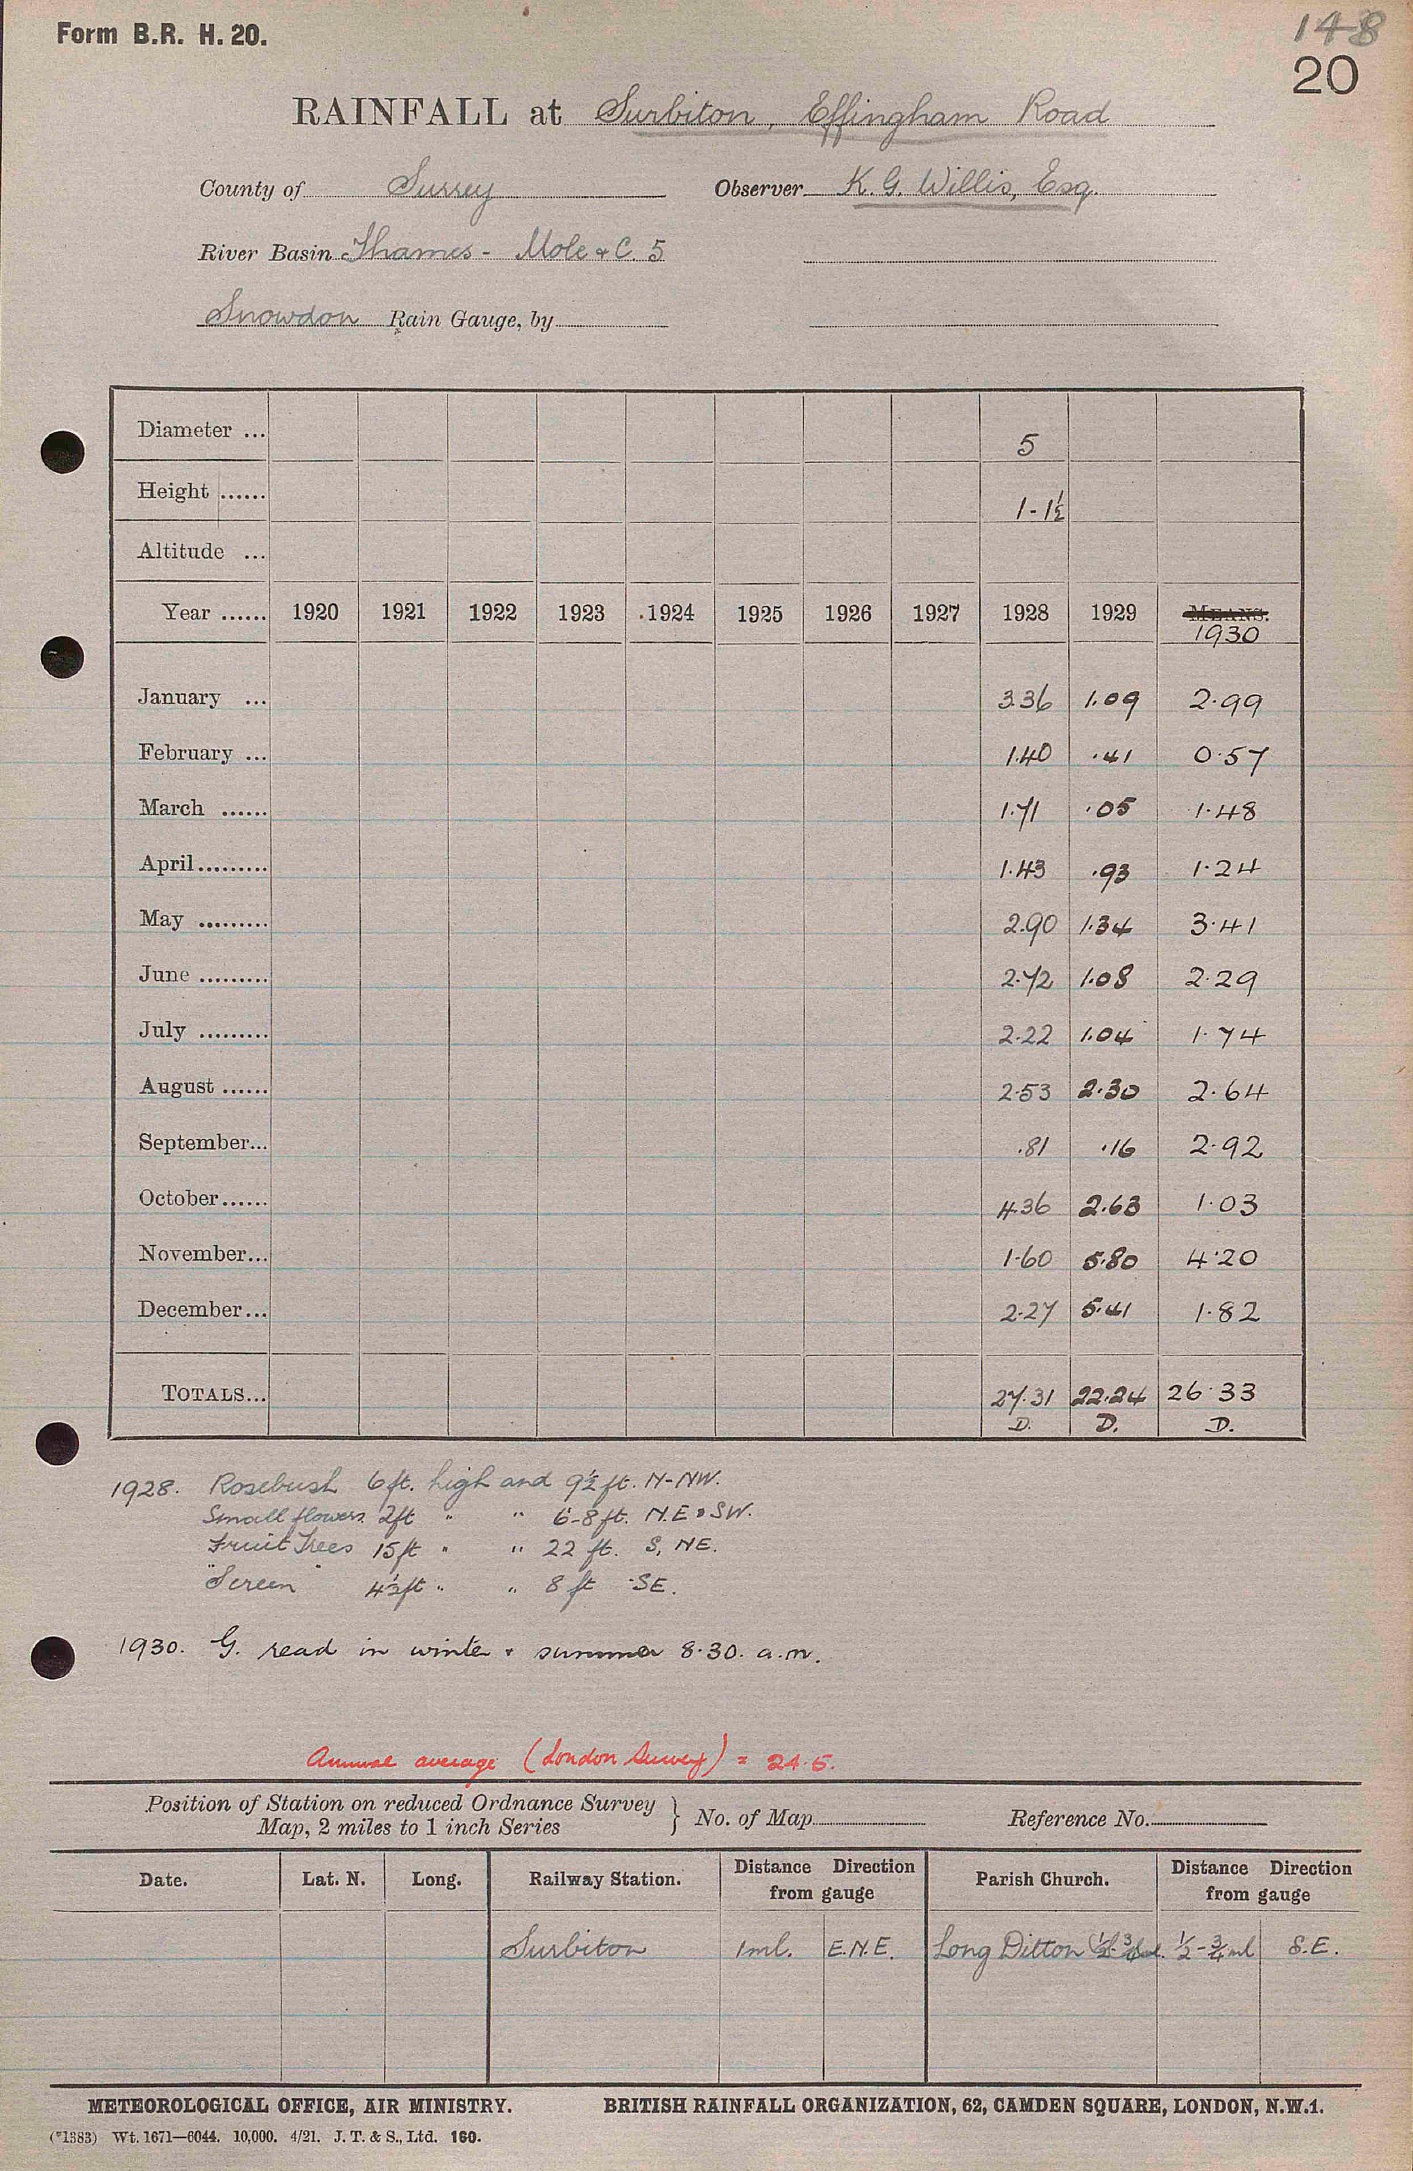 Form B.R. H. 20.
148
20
RAINFALL at Surbiton, Effingham Road
County of Surrey Observer K. G. Willis, Esq.
River Basin Thames - Mole & C. 5
Snowdon Rain Gauge, by
Diameter ... 5
Height ...... 1 - 1½
Altitude ...
Year ...... 1920 1921 1922 1923 1924 1925 1926 1927 1928 1929 MEANS.
1930
January ... 3.36 1.09 2.99
February ... 1.40 .41 0.57
March ...... 1.71 .05 1.48
April......... 1.43 .93 1.24
May ......... 2.90 1.34 3.41
June ......... 2.72 1.08 2.29
July ......... 2.22 1.04 1.74
August ...... 2.53 2.30 2.64
September... .81 .16 2.92
October...... 4.36 2.63 1.03
November... 1.60 5.80 4.20
December... 2.27 5.41 1.82
TOTALS... 27.31 22.24 26.33
D. D. D.
1928. Rosebush 6 ft. high and 9½ ft. N-NW.
Small flowers 2ft " " 6-8 ft. N.E & SW.
Fruit Trees 15 ft " " 22 ft. S, NE.
"Screen" 4½ft " " 8 ft SE.
1930. G. read in winter & summer 8.30. a.m.
Annual average (London Survey) = 24.5.
Position of Station on reduced Ordnance Survey
Map, 2 miles to 1 inch Series } No. of Map Reference No.
Date. Lat. N. Long. Railway Station. Distance Direction
from gauge Parish Church. Distance Direction
from gauge
Surbiton 1ml. E.N.E. Long Ditton ½-¾ml S.E.
METEOROLOGICAL OFFICE, AIR MINISTRY. BRITISH RAINFALL ORGANIZATION, 62, CAMDEN SQUARE, LONDON, N.W.1.
(*1383) Wt. 1671—6044. 10,000. 4/21. J. T. & S., Ltd. 160.